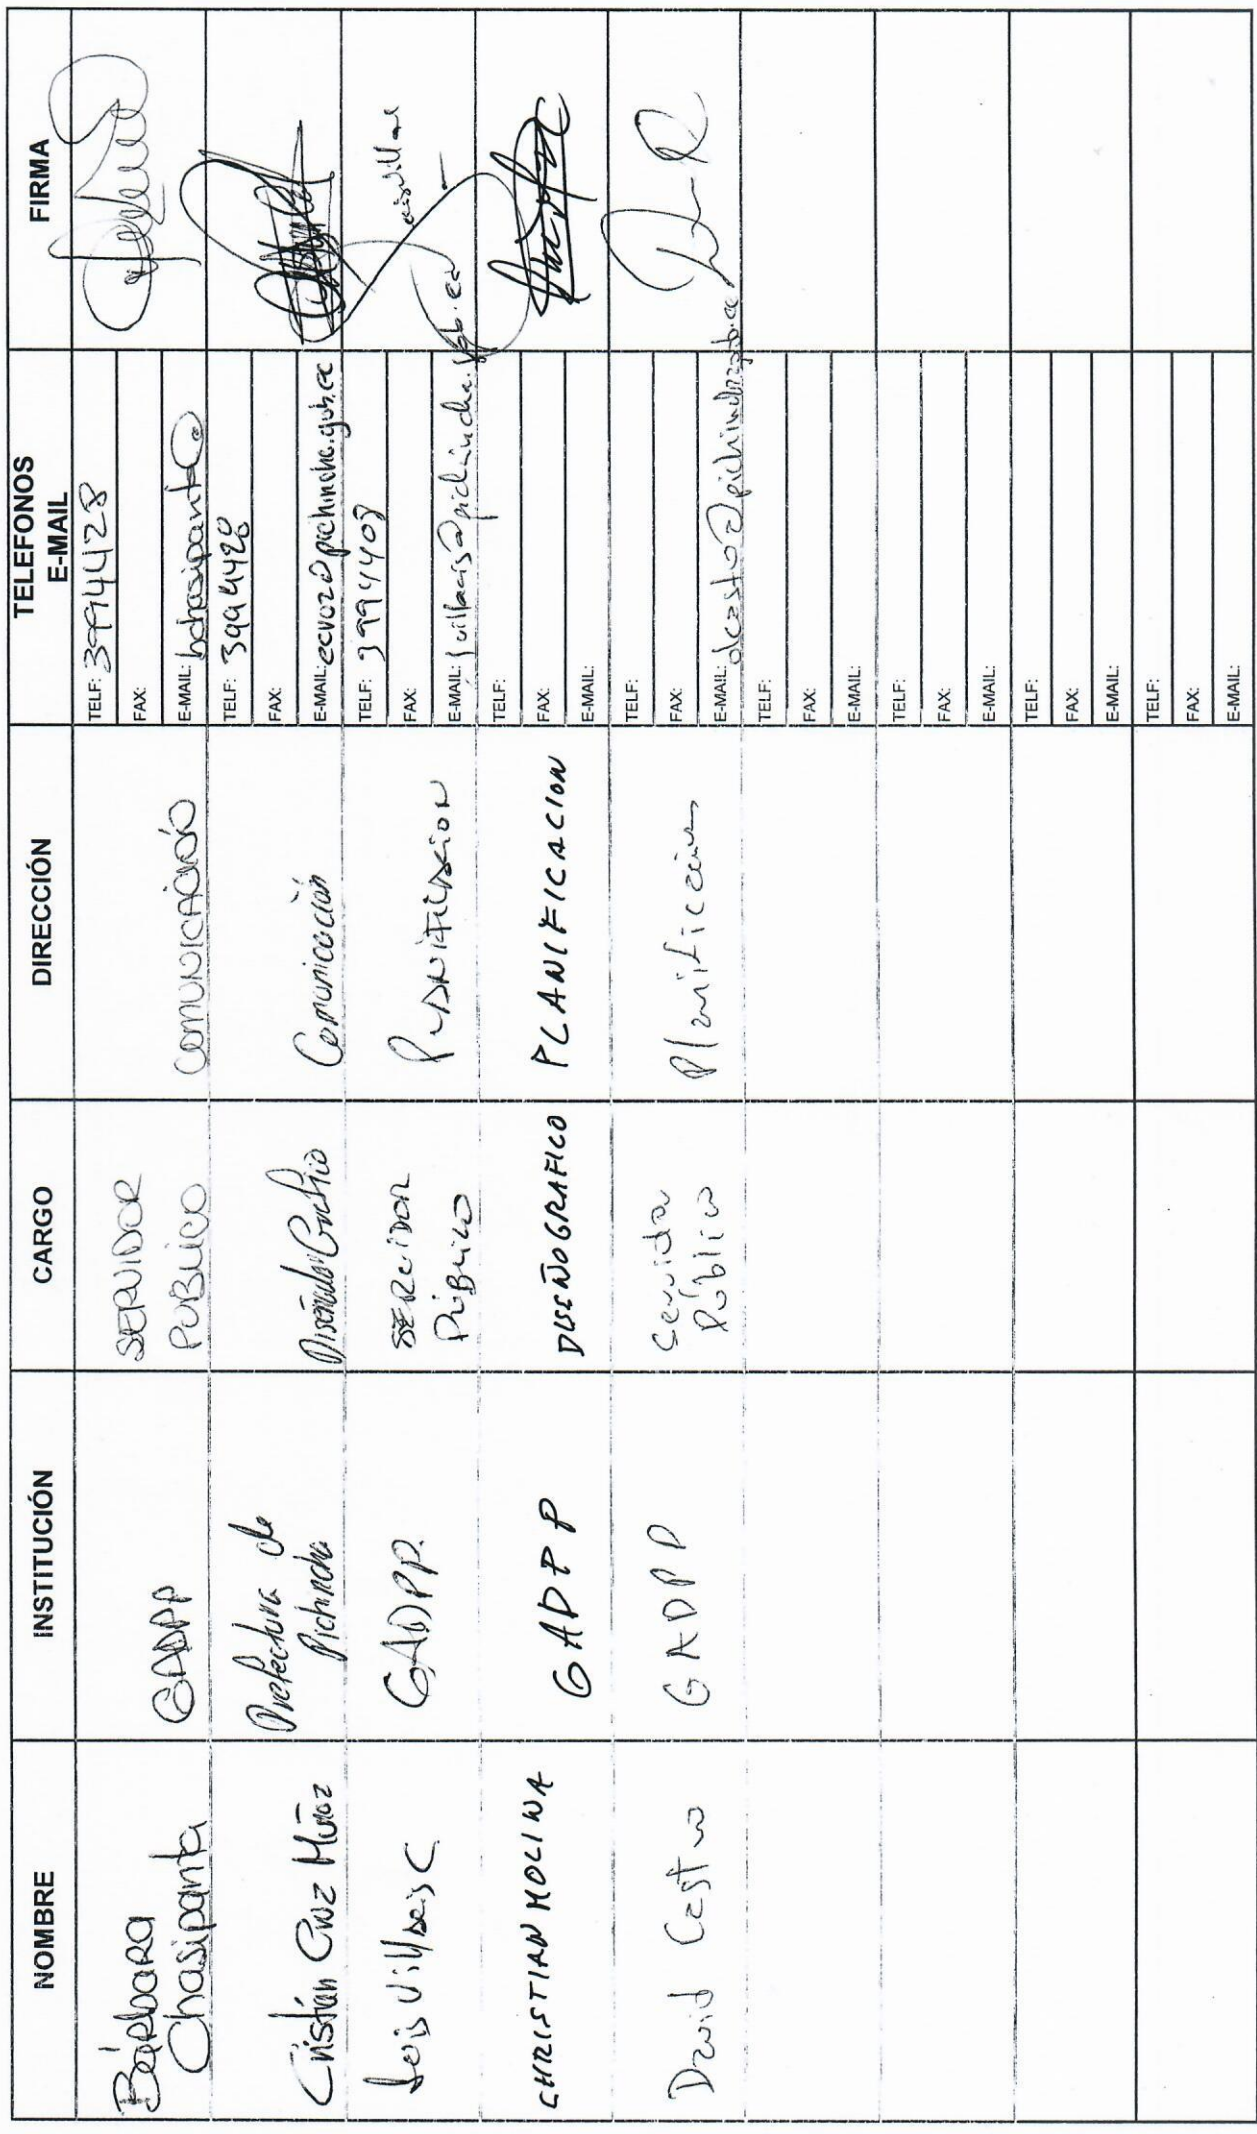 NOMBRE INSTITUCIÓN CARGO DIRECCIÓN TELEFONOS E-MAIL FIRMA
Bárbara
Chasipanta
GADPP
SERVIDOR
PÚBLICO
COMUNICACIÓN
TELF: 3994428
FAX:
E-MAIL: bchasipanta@
Cristian Cruz Muñoz
Prefectura de
Pichincha
Diseñador Gráfico
Comunicación
TELF: 3994428
FAX:
E-MAIL: ccruz@pichincha.gob.ec
Luis Villacis C
GADPP.
SERVIDOR
PÚBLICO
PLANIFICACION
TELF: 3994408
FAX:
E-MAIL: lvillacis@pichincha.gob.ec
CHRISTIAN MOLINA
GADPP
DISEÑO GRAFICO
PLANIFICACION
TELF:
FAX:
E-MAIL:
David Castro
GADPP
Servidor
Público
Planificación
TELF:
FAX:
E-MAIL: dcastro@pichincha.gob.ec
TELF:
FAX:
E-MAIL:
TELF:
FAX:
E-MAIL:
TELF:
FAX:
E-MAIL:
TELF:
FAX:
E-MAIL: